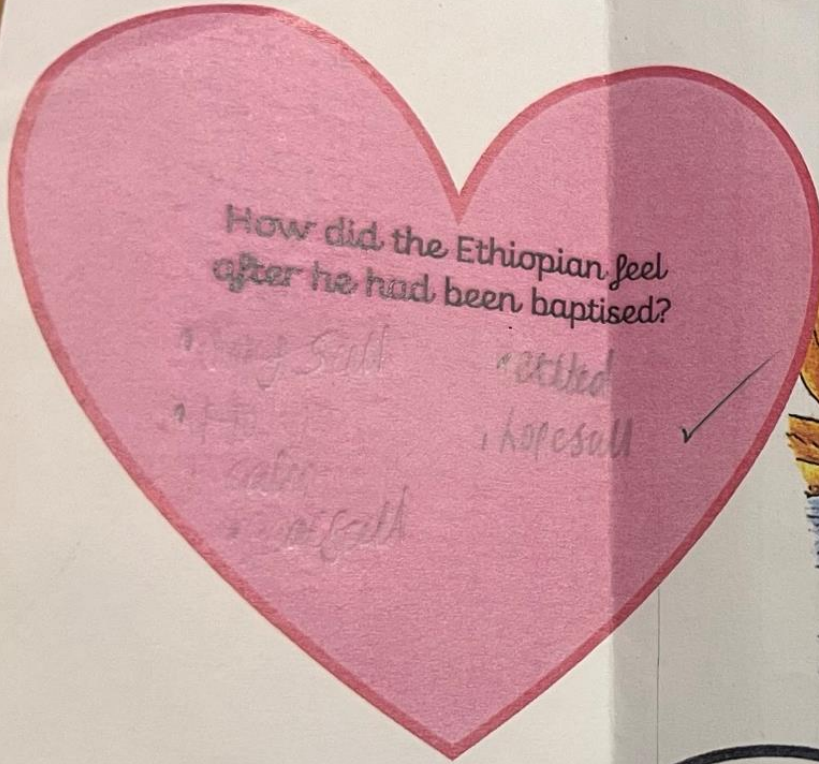 How did the Ethiopian feel
after he had been baptised?
exited
hopefull
calm